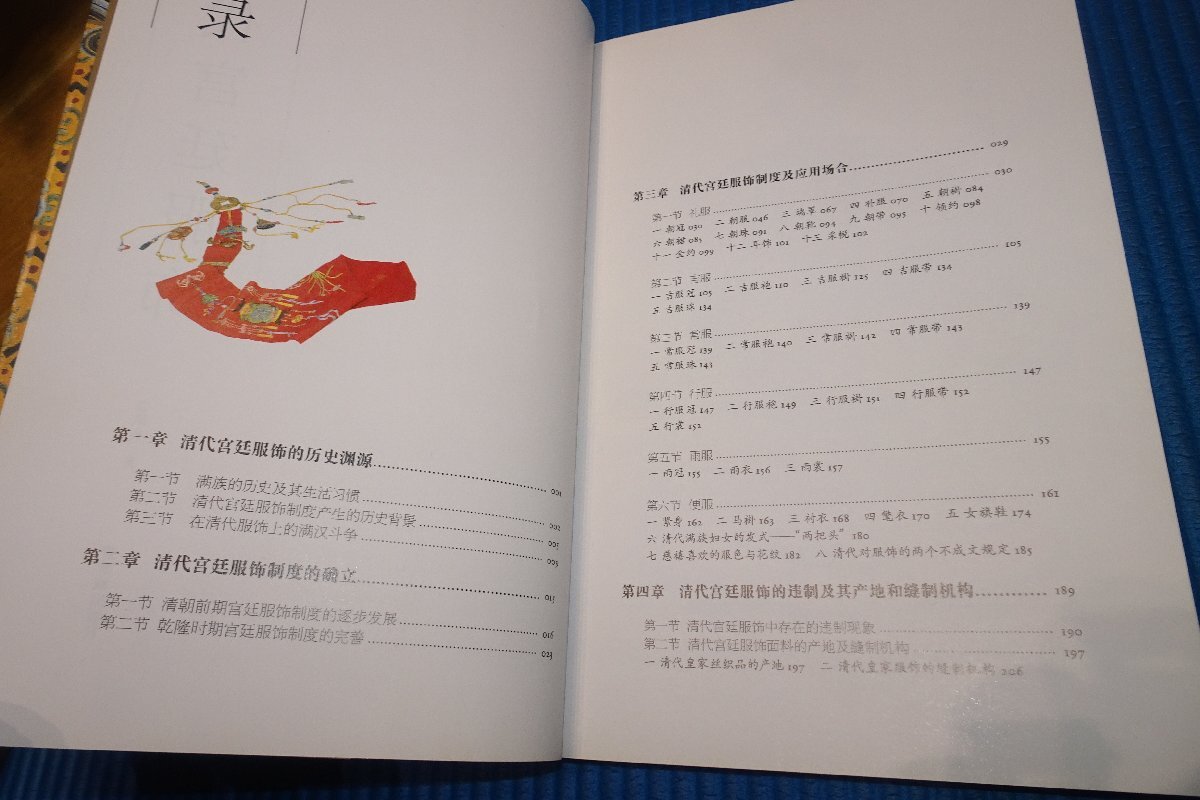 录
第一章 清代宫廷服饰的历史渊源 001
第一节 满族的历史及其生活习惯 002
第二节 清代宫廷服饰制度产生的历史背景
第三节 在清代服饰上的满汉斗争 005
第二章 清代宫廷服饰制度的确立 015
第一节 清朝前期宫廷服饰制度的逐步发展 016
第二节 乾隆时期宫廷服饰制度的完善 023
第三章 清代宫廷服饰制度及应用场合 029
第一节 礼服 030
一 朝冠 030 二 朝服 046 三 端罩 067 四 补服 070 五 朝褂 084
六 朝裙 085 七 朝珠 091 八 朝靴 094 九 朝带 095 十 领约 098
十一 金约 099 十二 耳饰 101 十三 采帨 102
第二节 吉服 105
一 吉服冠 105 二 吉服袍 110 三 吉服褂 125 四 吉服带 134
五 吉服珠 134
第三节 常服 139
一 常服冠 139 二 常服袍 140 三 常服褂 142 四 常服带 143
五 常服珠 143
第四节 行服 147
一 行服冠 147 二 行服袍 149 三 行服褂 151 四 行服带 152
五 行裳 152
第五节 雨服 155
一 雨冠 155 二 雨衣 156 三 雨裳 157
第六节 便服 161
一 紧身 162 二 马褂 163 三 衬衣 168 四 氅衣 170 五 女旗鞋 174
六 清代满族妇女的发式——“两把头” 180
七 慈禧喜欢的服色与花纹 182 八 清代对服饰的两个不成文规定 185
第四章 清代宫廷服饰的违制及其产地和缝制机构 189
第一节 清代宫廷服饰中存在的违制现象 190
第二节 清代宫廷服饰面料的产地及缝制机构 197
一 清代皇家丝织品的产地 197 二 清代皇家服饰的缝制机构 206